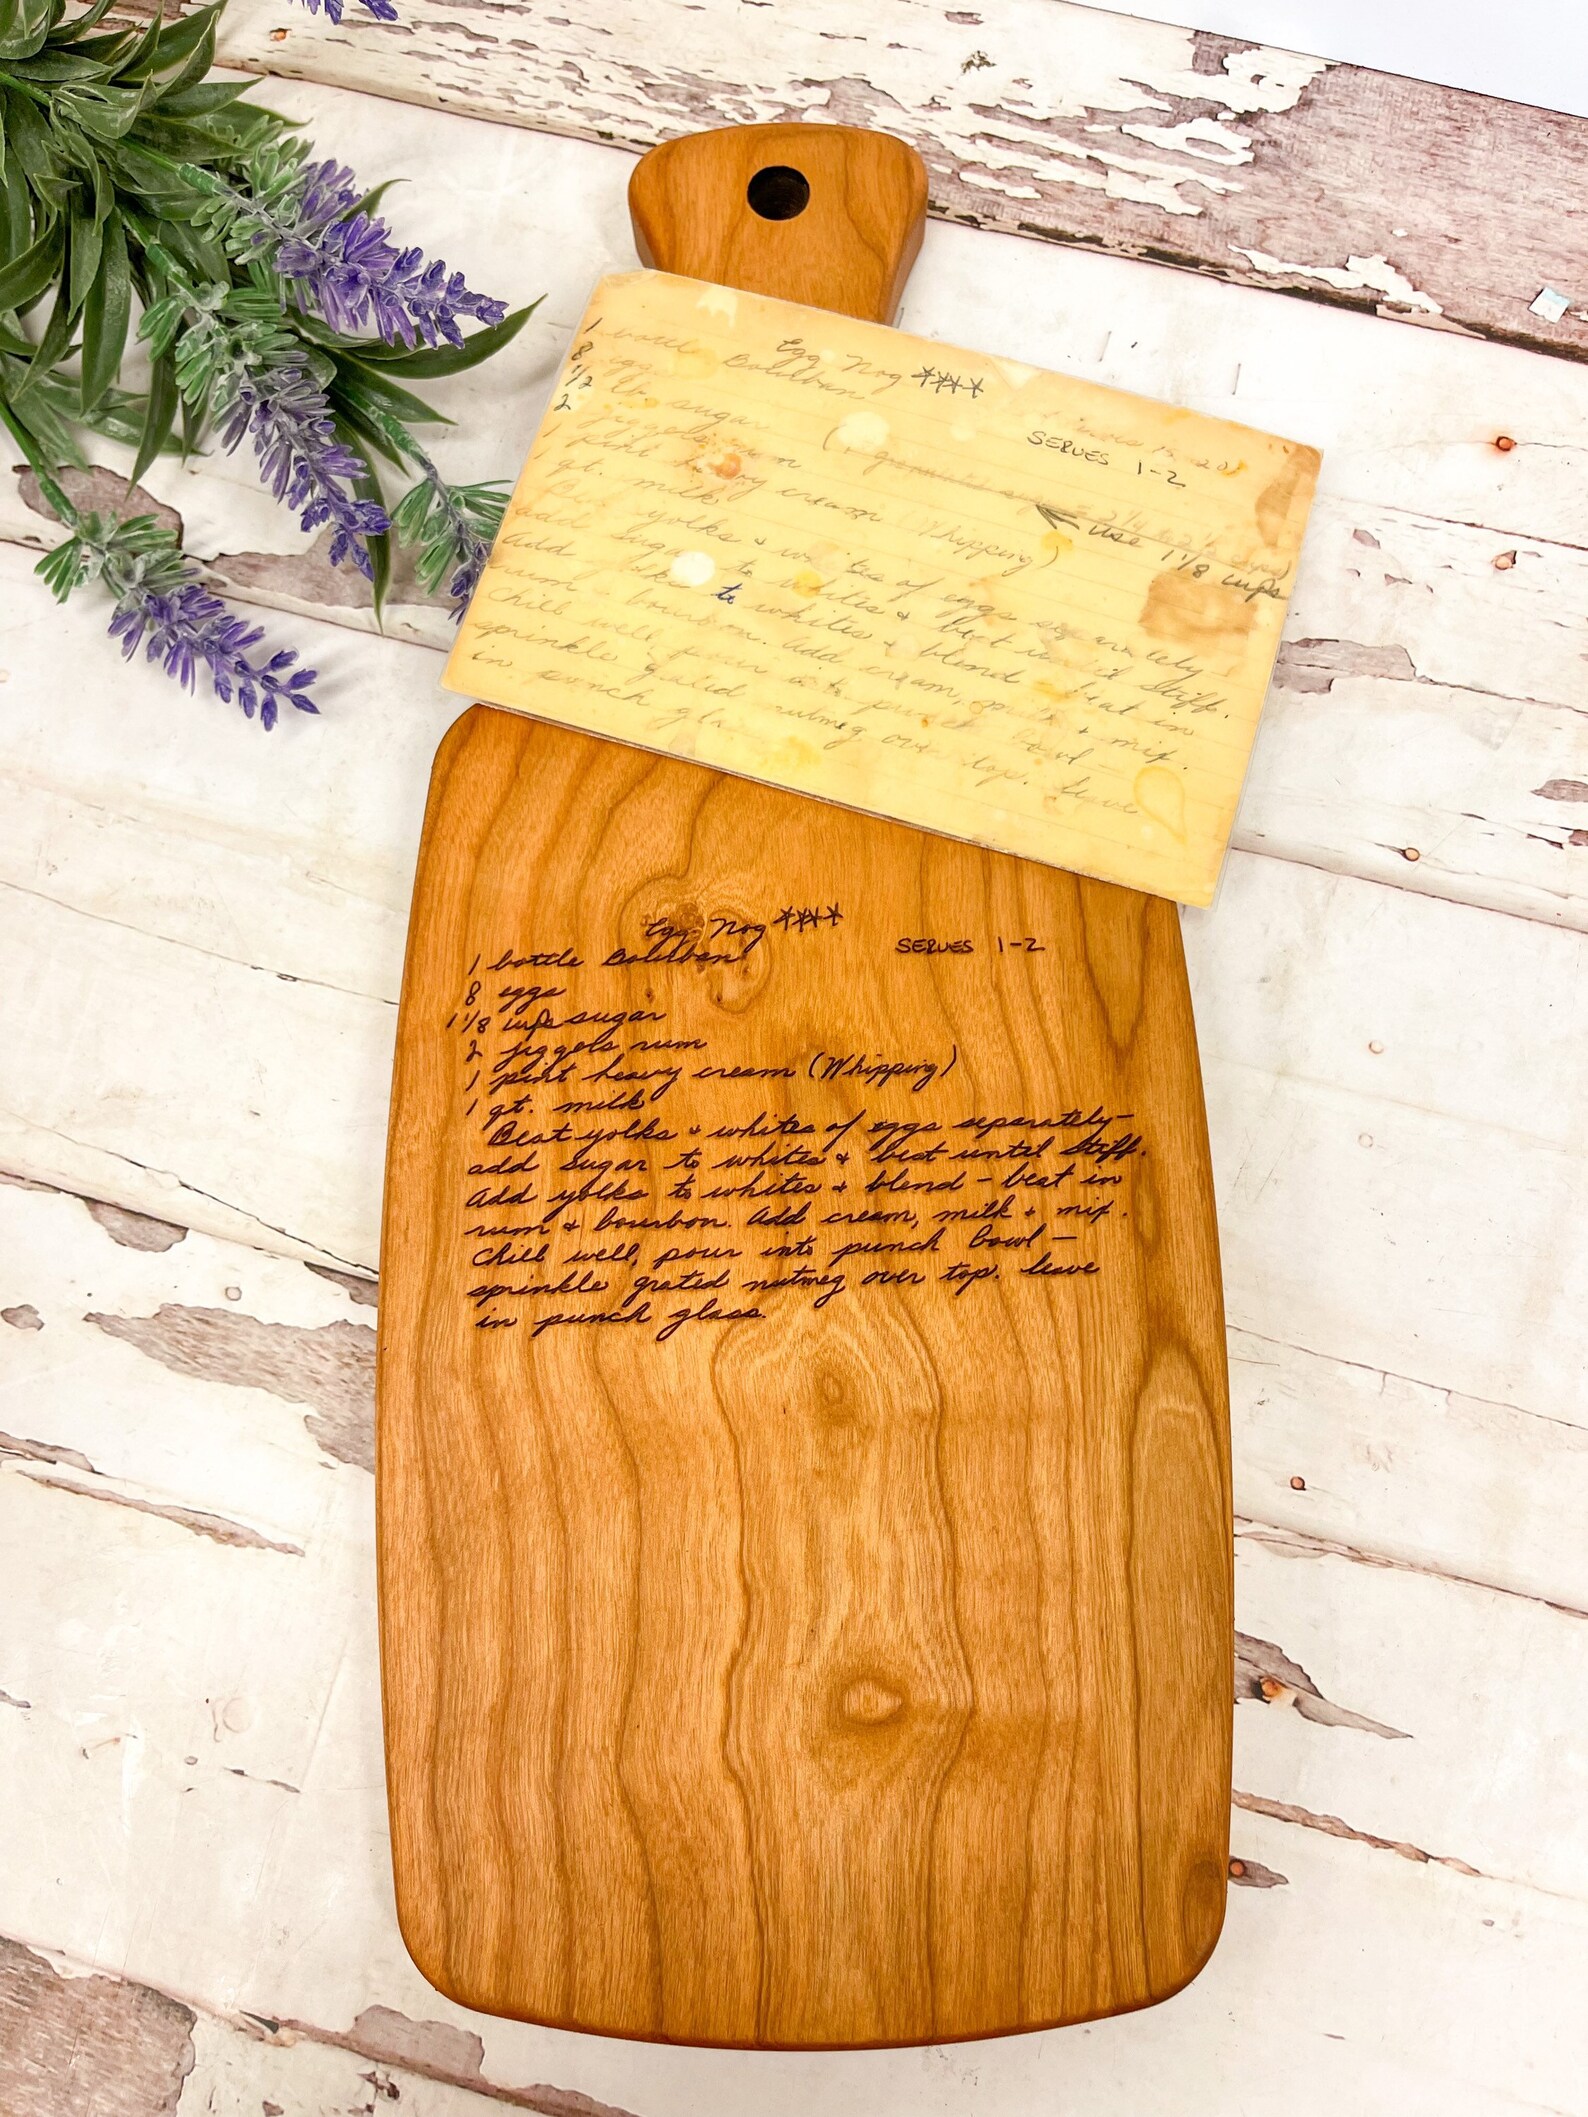 Egg Nog ****
1 bottle Boulban
8 eggs
1/2 lb. sugar
SERVES 1-2
2 jiggels rum
1 pint heavy cream (Whipping)
← use 1 1/8 cups
1 qt. milk
yolks & whites of eggs separately
add sugar to whites & beat until stiff.
Add yolks to whites & blend beat in
rum bourbon. Add cream, milk & mix.
Chill well, pour into punch bowl –
sprinkle grated nutmeg over top. leave
in punch
Egg Nog ****
SERVES 1-2
1 bottle Boulban
8 eggs
1 1/8 cups sugar
2 jiggels rum
1 pint heavy cream (Whipping)
1 qt. milk
Beat yolks & whites of eggs separately –
add sugar to whites & beat until stiff.
Add yolks to whites & blend – beat in
rum & bourbon. Add cream, milk & mix.
Chill well, pour into punch bowl –
sprinkle grated nutmeg over top. leave
in punch glass.